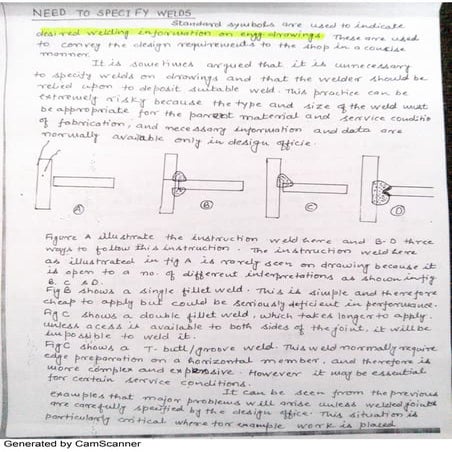 NEED TO SPECIFY WELDS
Standard symbols are used to indicate
desired welding information on engg drawings These are used
to convey the design requirements to the shop in a concise
manner.
It is sometimes argued that it is unnecessary
to specify welds on drawings and that the welder should be
relied upon to deposit suitable weld. This practice can be
extremely risky because the type and size of the weld must
be appropriate for the parent material and service conditio
of fabrication, and necessary information and data are
normally available only in design office.
A
B
C
D
Figure A illustrate the instruction weld here and B-D three
ways to follow this instruction. The instruction weld here
as illustrated in fig A is rarely seen on drawing because it
is open to a no. of different interpretations as shown in fig
B, C & D.
Fig B shows a single fillet weld. This is simple and therefore
cheap to apply but could be seriously deficient in performance.
Fig C shows a double fillet weld, which takes longer to apply.
unless acess is available to both sides of the joint, it will be
impossible to weld it.
Fig C shows a T-butt/groove weld. This weld normally require
edge preparation on a horizontal member, and therefore is
more complex and expensive. However it may be essential
for certain service conditions.
It can be seen from the previous
examples that major problems will arise unless welded joints
are carefully specified by the design office. This situation is
particularly critical where for example work is placed
Generated by CamScanner